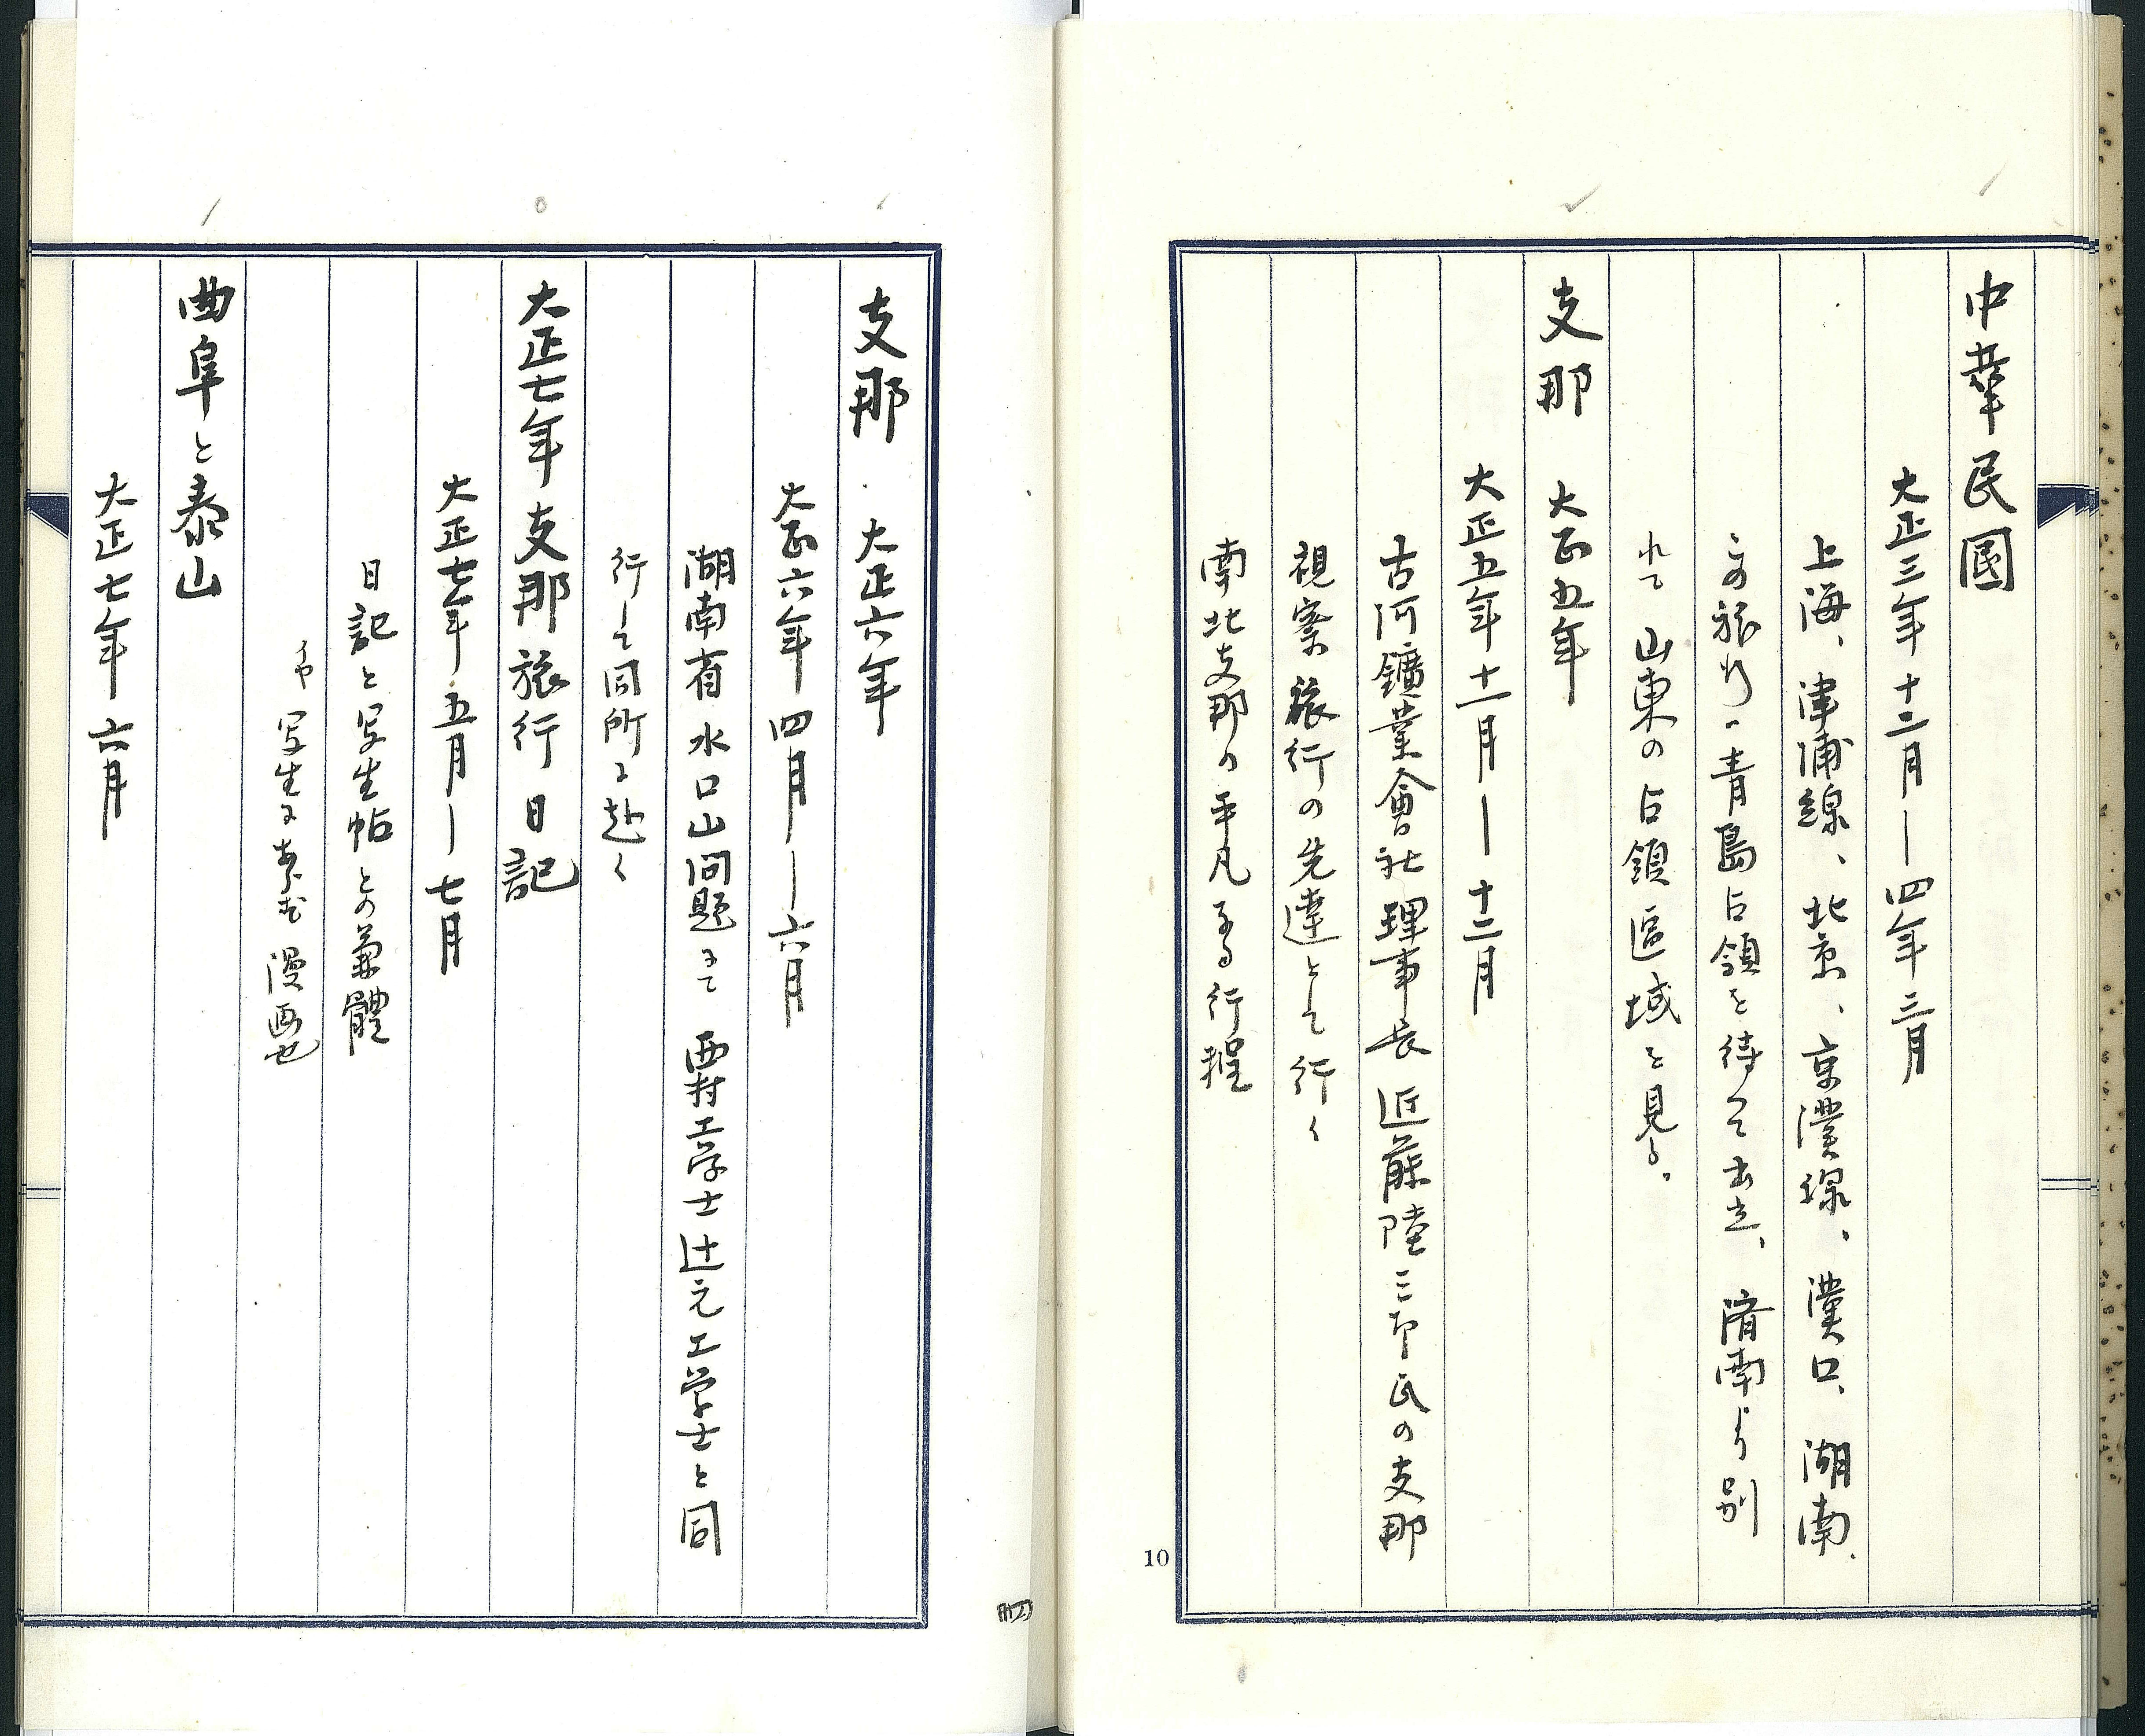 中華民國
大正三年十二月ー四年三月
上海、津浦線、北京、京漢線、漢口、湖南、
この旅行ハ青島占領を待つて出立、済南より別
れて山東の占領區域を見る。
支那 大正五年
大正五年十一月ー十二月
古河鑛業會社理事長近藤陸三郎氏の支那
視察旅行の先達として行く
南北支那の平凡なる行程
10
支那 大正六年
大正六年四月ー六月
湖南省水口山問題にて西村工学士辻元工学士と同
行して同所に赴く
大正七年支那旅行日記
大正七年五月ー七月
日記と写生帖との兼體
写生にあらず漫画也
曲阜と泰山
大正七年六月
四